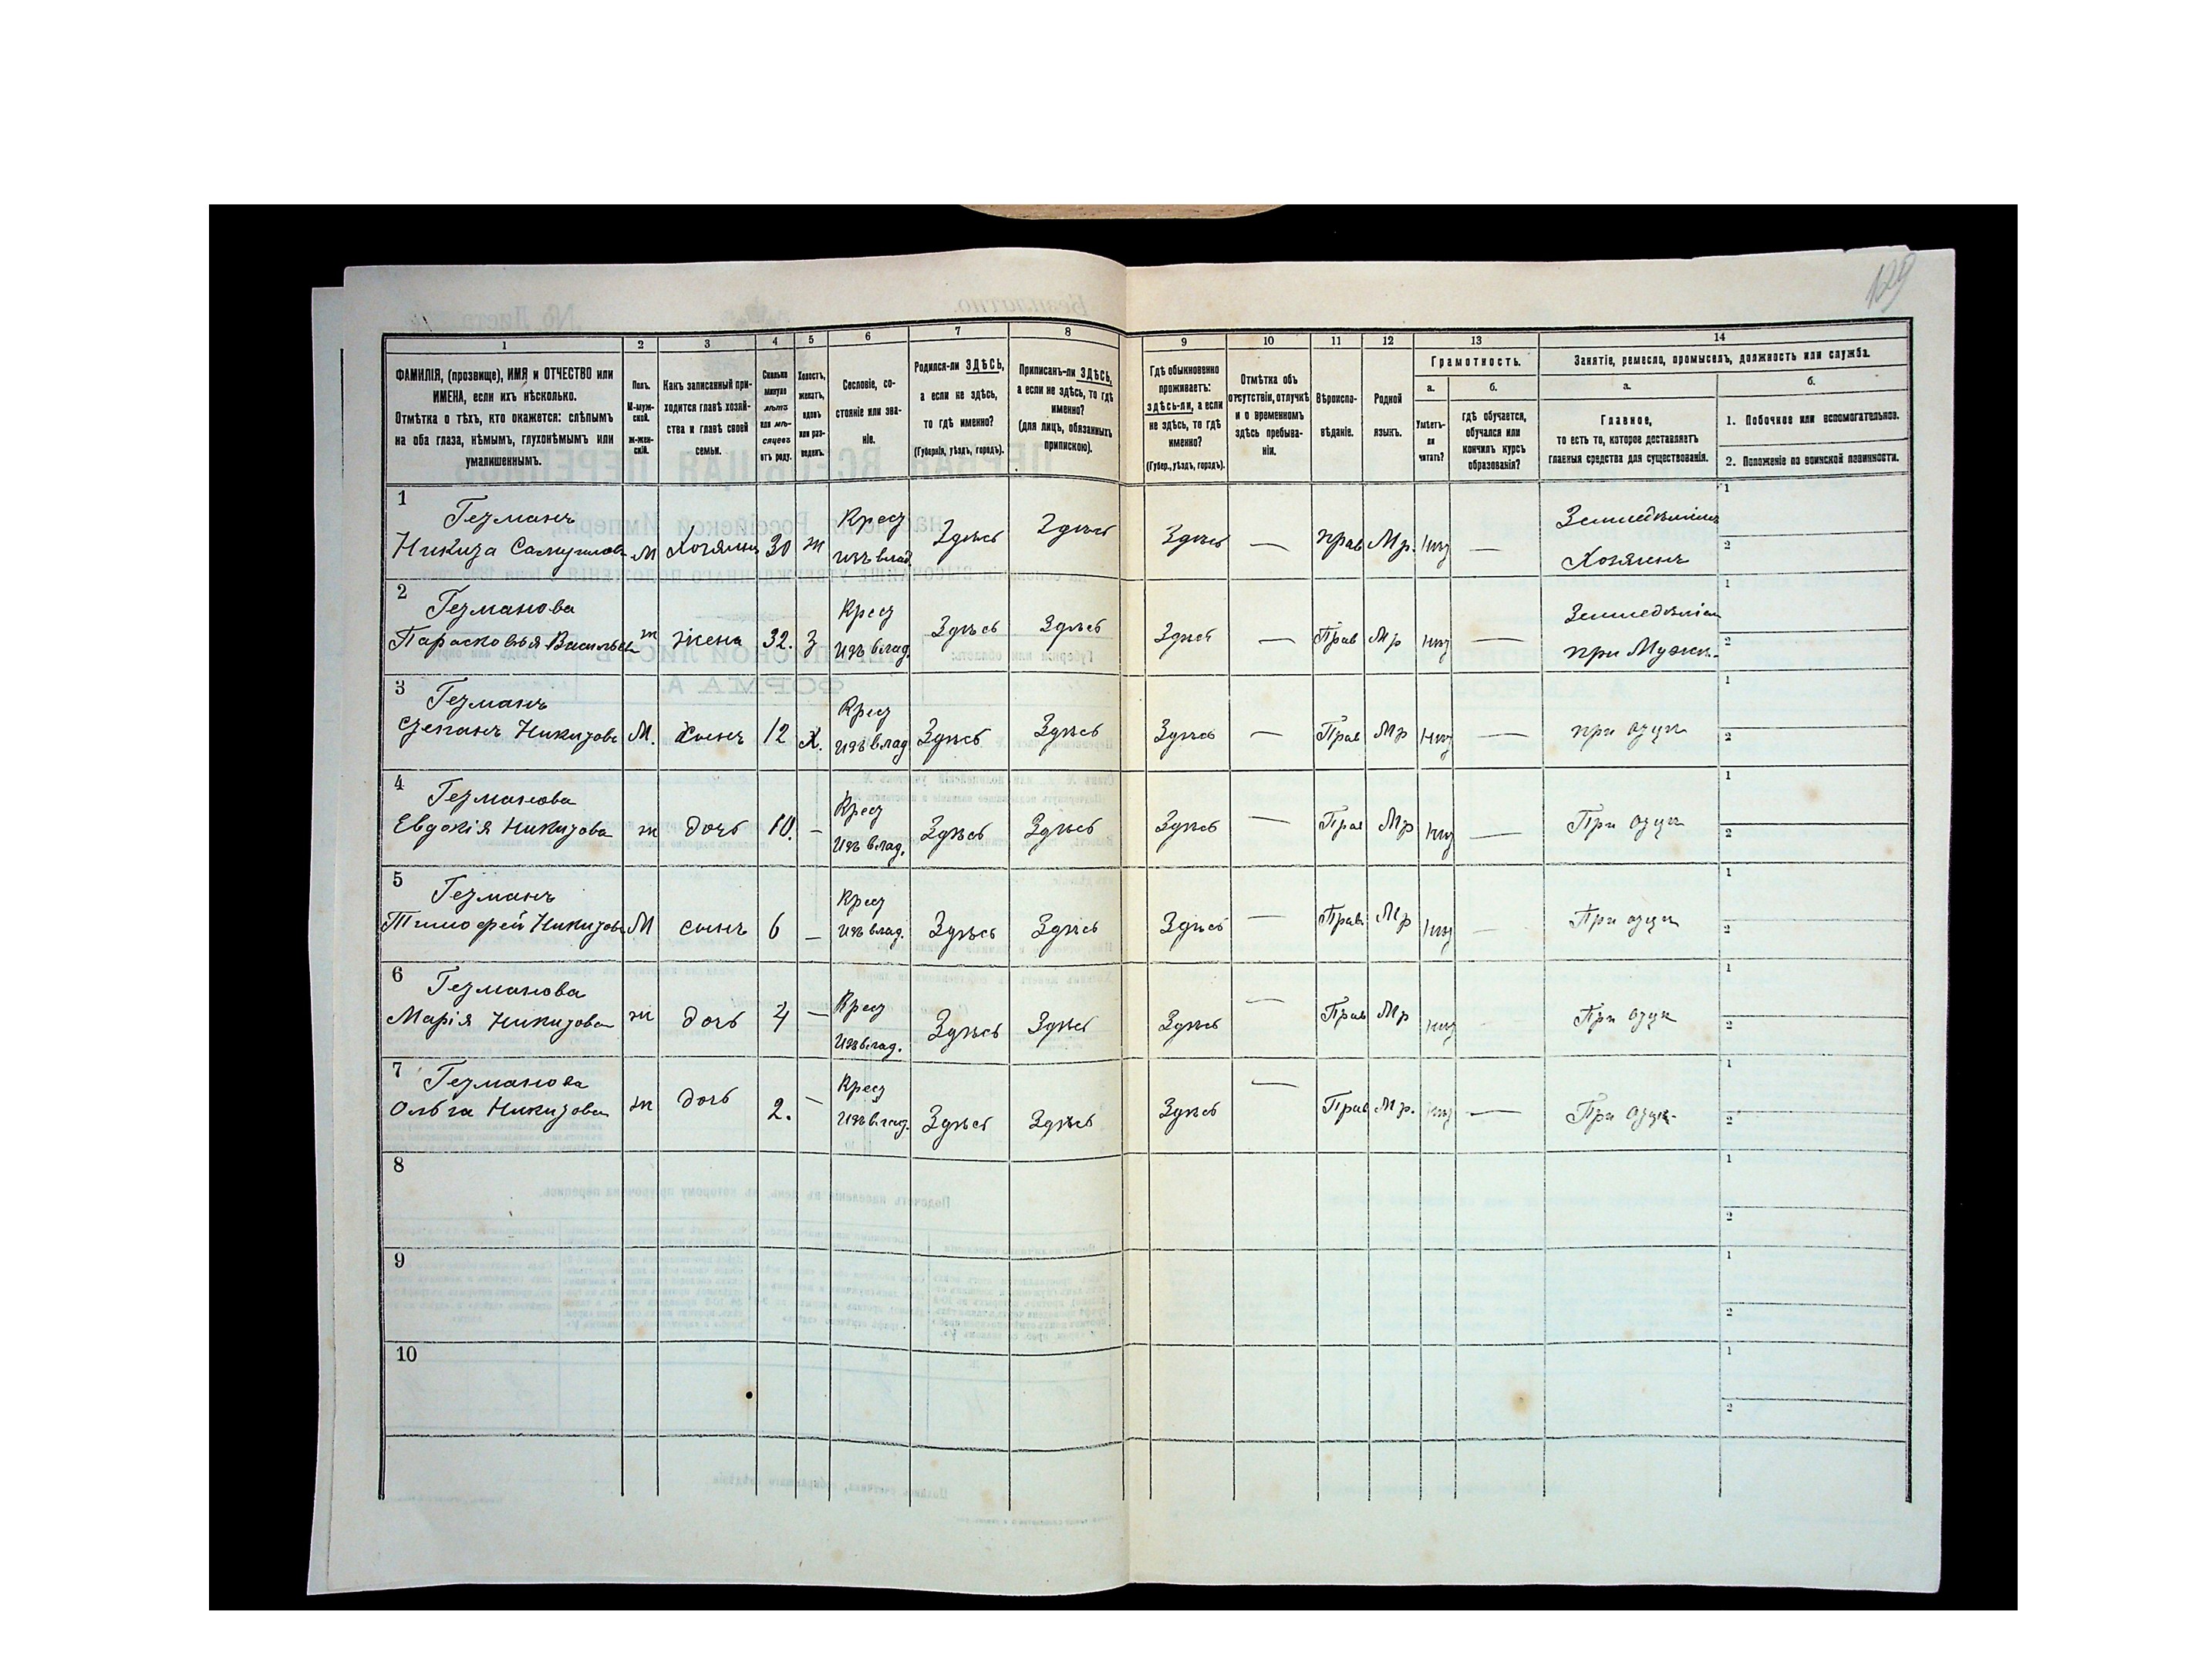 129
1 2 3 4 5 6 7 8 9 10 11 12 13 14
ФАМИЛІЯ, (прозвище), ИМЯ и ОТЧЕСТВО или
ИМЕНА, если ихъ нѣсколько.
Отмѣтка о тѣхъ, кто окажется: слѣпымъ
на оба глаза, нѣмымъ, глухонѣмымъ или
умалишеннымъ.
Полъ.
М-муж-
ской.
ж-жен-
скій.
Какъ записанный при-
ходится главѣ хозяй-
ства и главѣ своей
семьи.
Сколько
минуло
лѣтъ
или мѣ-
сяцевъ
отъ роду.
Холостъ,
женатъ,
вдовъ
или раз-
веденъ.
Сословіе, со-
стояніе или зва-
ніе.
Родился-ли ЗДѢСЬ,
а если не здѣсь,
то гдѣ именно?
(Губернія, уѣздъ, городъ).
Приписанъ-ли ЗДѢСЬ,
а если не здѣсь, то гдѣ
именно?
(для лицъ, обязанныхъ
припискою).
Гдѣ обыкновенно
проживаетъ:
здѣсь-ли, а если
не здѣсь, то гдѣ
именно?
(Губер., уѣздъ, городъ).
Отмѣтка объ
отсутствіи, отлучкѣ
и о временномъ
здѣсь пребыва-
ніи.
Вѣроиспо-
вѣданіе.
Родной
языкъ.
Грамотность.
а.
Умѣетъ-
ли
читать?
б.
гдѣ обучается,
обучался или
кончилъ курсъ
образованія?
Занятіе, ремесло, промыселъ, должность или служба.
а.
Главное,
то есть то, которое доставляетъ
главныя средства для существованія.
б.
1. Побочное или вспомогательное.
2. Положеніе по воинской повинности.
1 Гетманъ Крест Земледѣліемъ 1
Никита Самуилов М Хозяинъ 30 ж изъ влад. Здѣсь Здѣсь Здѣсь — прав Мр. нит — Хозяинъ 2
2 Гетманова Крест Земледѣліем 1
Парасковья Васильев ж жена 32. З изъ влад. Здѣсь Здѣсь Здѣсь — Прав Мр нит — при Мужи. 2
3 Гетманъ Крест 1
Степанъ Никитовъ М. Сынъ 12 Х. изъ влад Здѣсь Здѣсь Здѣсь — Прав Мр нит — при отцѣ 2
4 Гетманова Крест 1
Евдокія Никитова ж дочь 10. — изъ влад. Здѣсь Здѣсь Здѣсь — Прав Мр нит — При отцѣ 2
5 Гетманъ Крест 1
Тимофей Никитовъ М сынъ 6 — изъ влад. Здѣсь Здѣсь Здѣсь — Прав Мр нит — При отцѣ 2
6 Гетманова Крест 1
Марія Никитова ж дочь 4 — изъ влад. Здѣсь Здѣсь Здѣсь — Прав Мр нит — При отцѣ 2
7 Гетманова Крест 1
Ольга Никитова ж дочь 2. — изъ влад. Здѣсь Здѣсь Здѣсь — Прав Мр. нит — При отцѣ 2
8 1
2
9 1
2
10 1
2